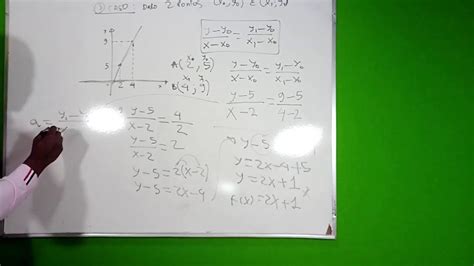 ② CASO: Dado 2 Pontos (x₀, y₀) E (x₁, y₁)
y-y₀/x-x₀ = y₁-y₀/x₁-x₀
y
9
5
2 4 x
x₀ y₀
A(2, 5)
x₁ y₁
B(4, 9)
y-y₀/x-x₀ = y₁-y₀/x₁-x₀
y-5/x-2 = 9-5/4-2
y-5/x-2 = 4/2
y-5/x-2 = 2
y-5=2(x-2)
y-5=2x-4
y-5
y=2x-4+5
y=2x+1
f(x)=2x+1
a =